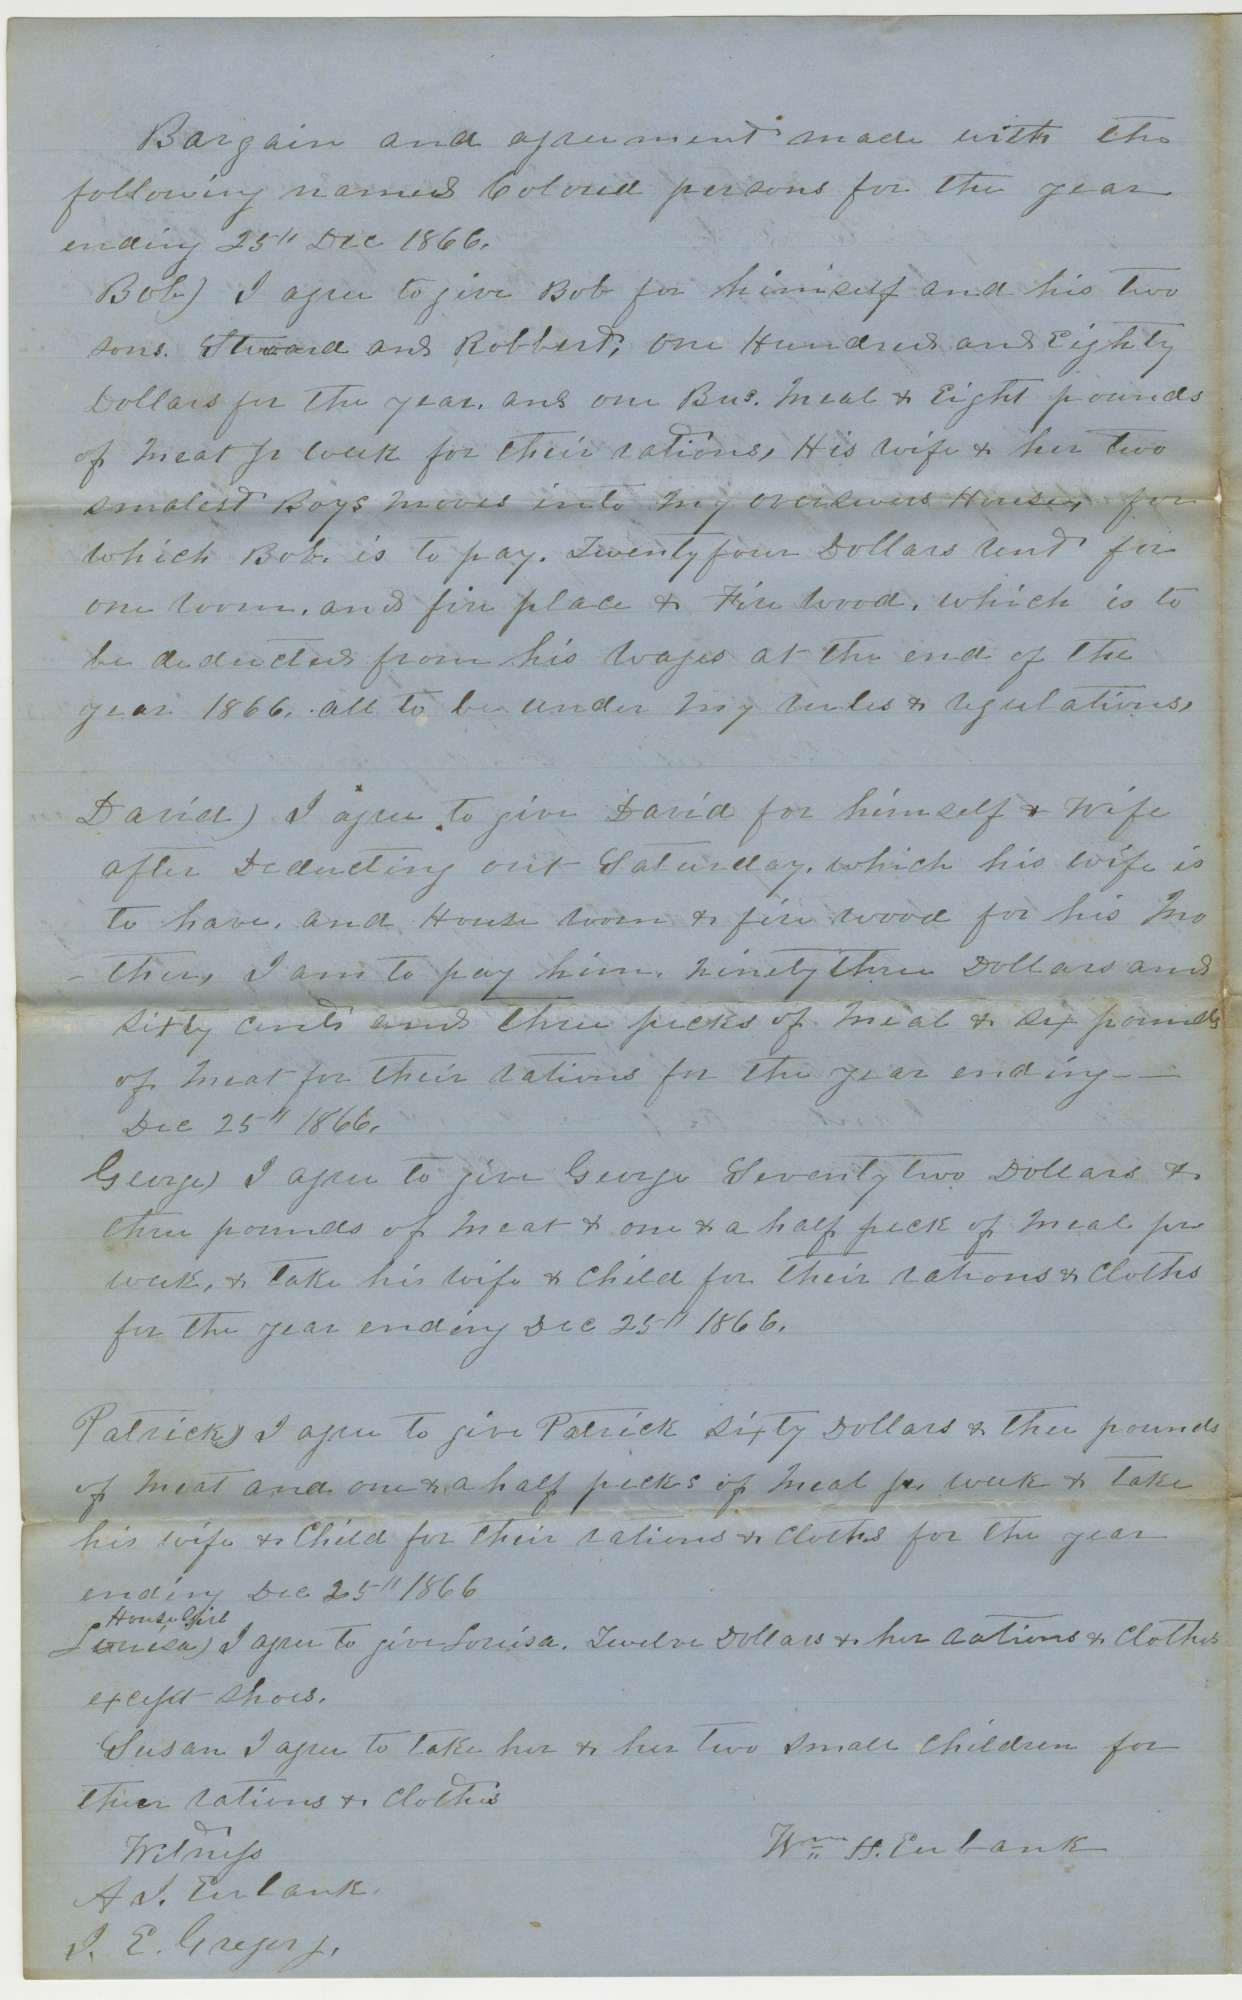 Bargain and agreement made with the
following named Colored persons for the year
ending 25" Dec 1866.
Bob) I agree to give Bob for himself and his two
sons. and Robbert, One Hundred and Eighty
Dollars for the year. and one Bus. Meal & Eight pounds
of Meat pr week for their rations, His wife & her two
smalest Boys moves into my overseers House, for
which Bob. is to pay. Twenty four Dollars rent for
one room. and fire place & Fire wood. which is to
be deducted from his wages at the end of the
year 1866. all to be under my rules & regulations,
David) I agree to give David for himself & Wife
after Deducting out Saturday. which his wife is
to have. and House room & fire wood for his Mo
-ther, I am to pay him. Ninety three Dollars and
sixty cents and three pecks of Meal & six pounds
of Meat for their rations for the year ending —
Dec 25" 1866.
George) I agree to give George Seventy two Dollars &
three pounds of Meat & one & a half peck of Meal pr
week, & take his wife & child for their rations & cloths
for the year ending Dec 25" 1866.
Patrick) I agree to give Patrick sixty Dollars & three pounds
of Meat and one & a half pecks of Meal pr week & take
his wife & Child for their rations & cloths for the year
ending Dec 25" 1866
House Girl
Louisa) I agree to give Louisa. Twelve Dollars & her rations & Clothes
except shoes.
Susan I agree to take her & her two small children for
their rations & clothes
Witness
Wm H. Eubank
A J. Eubank.
J. E. Gregory.